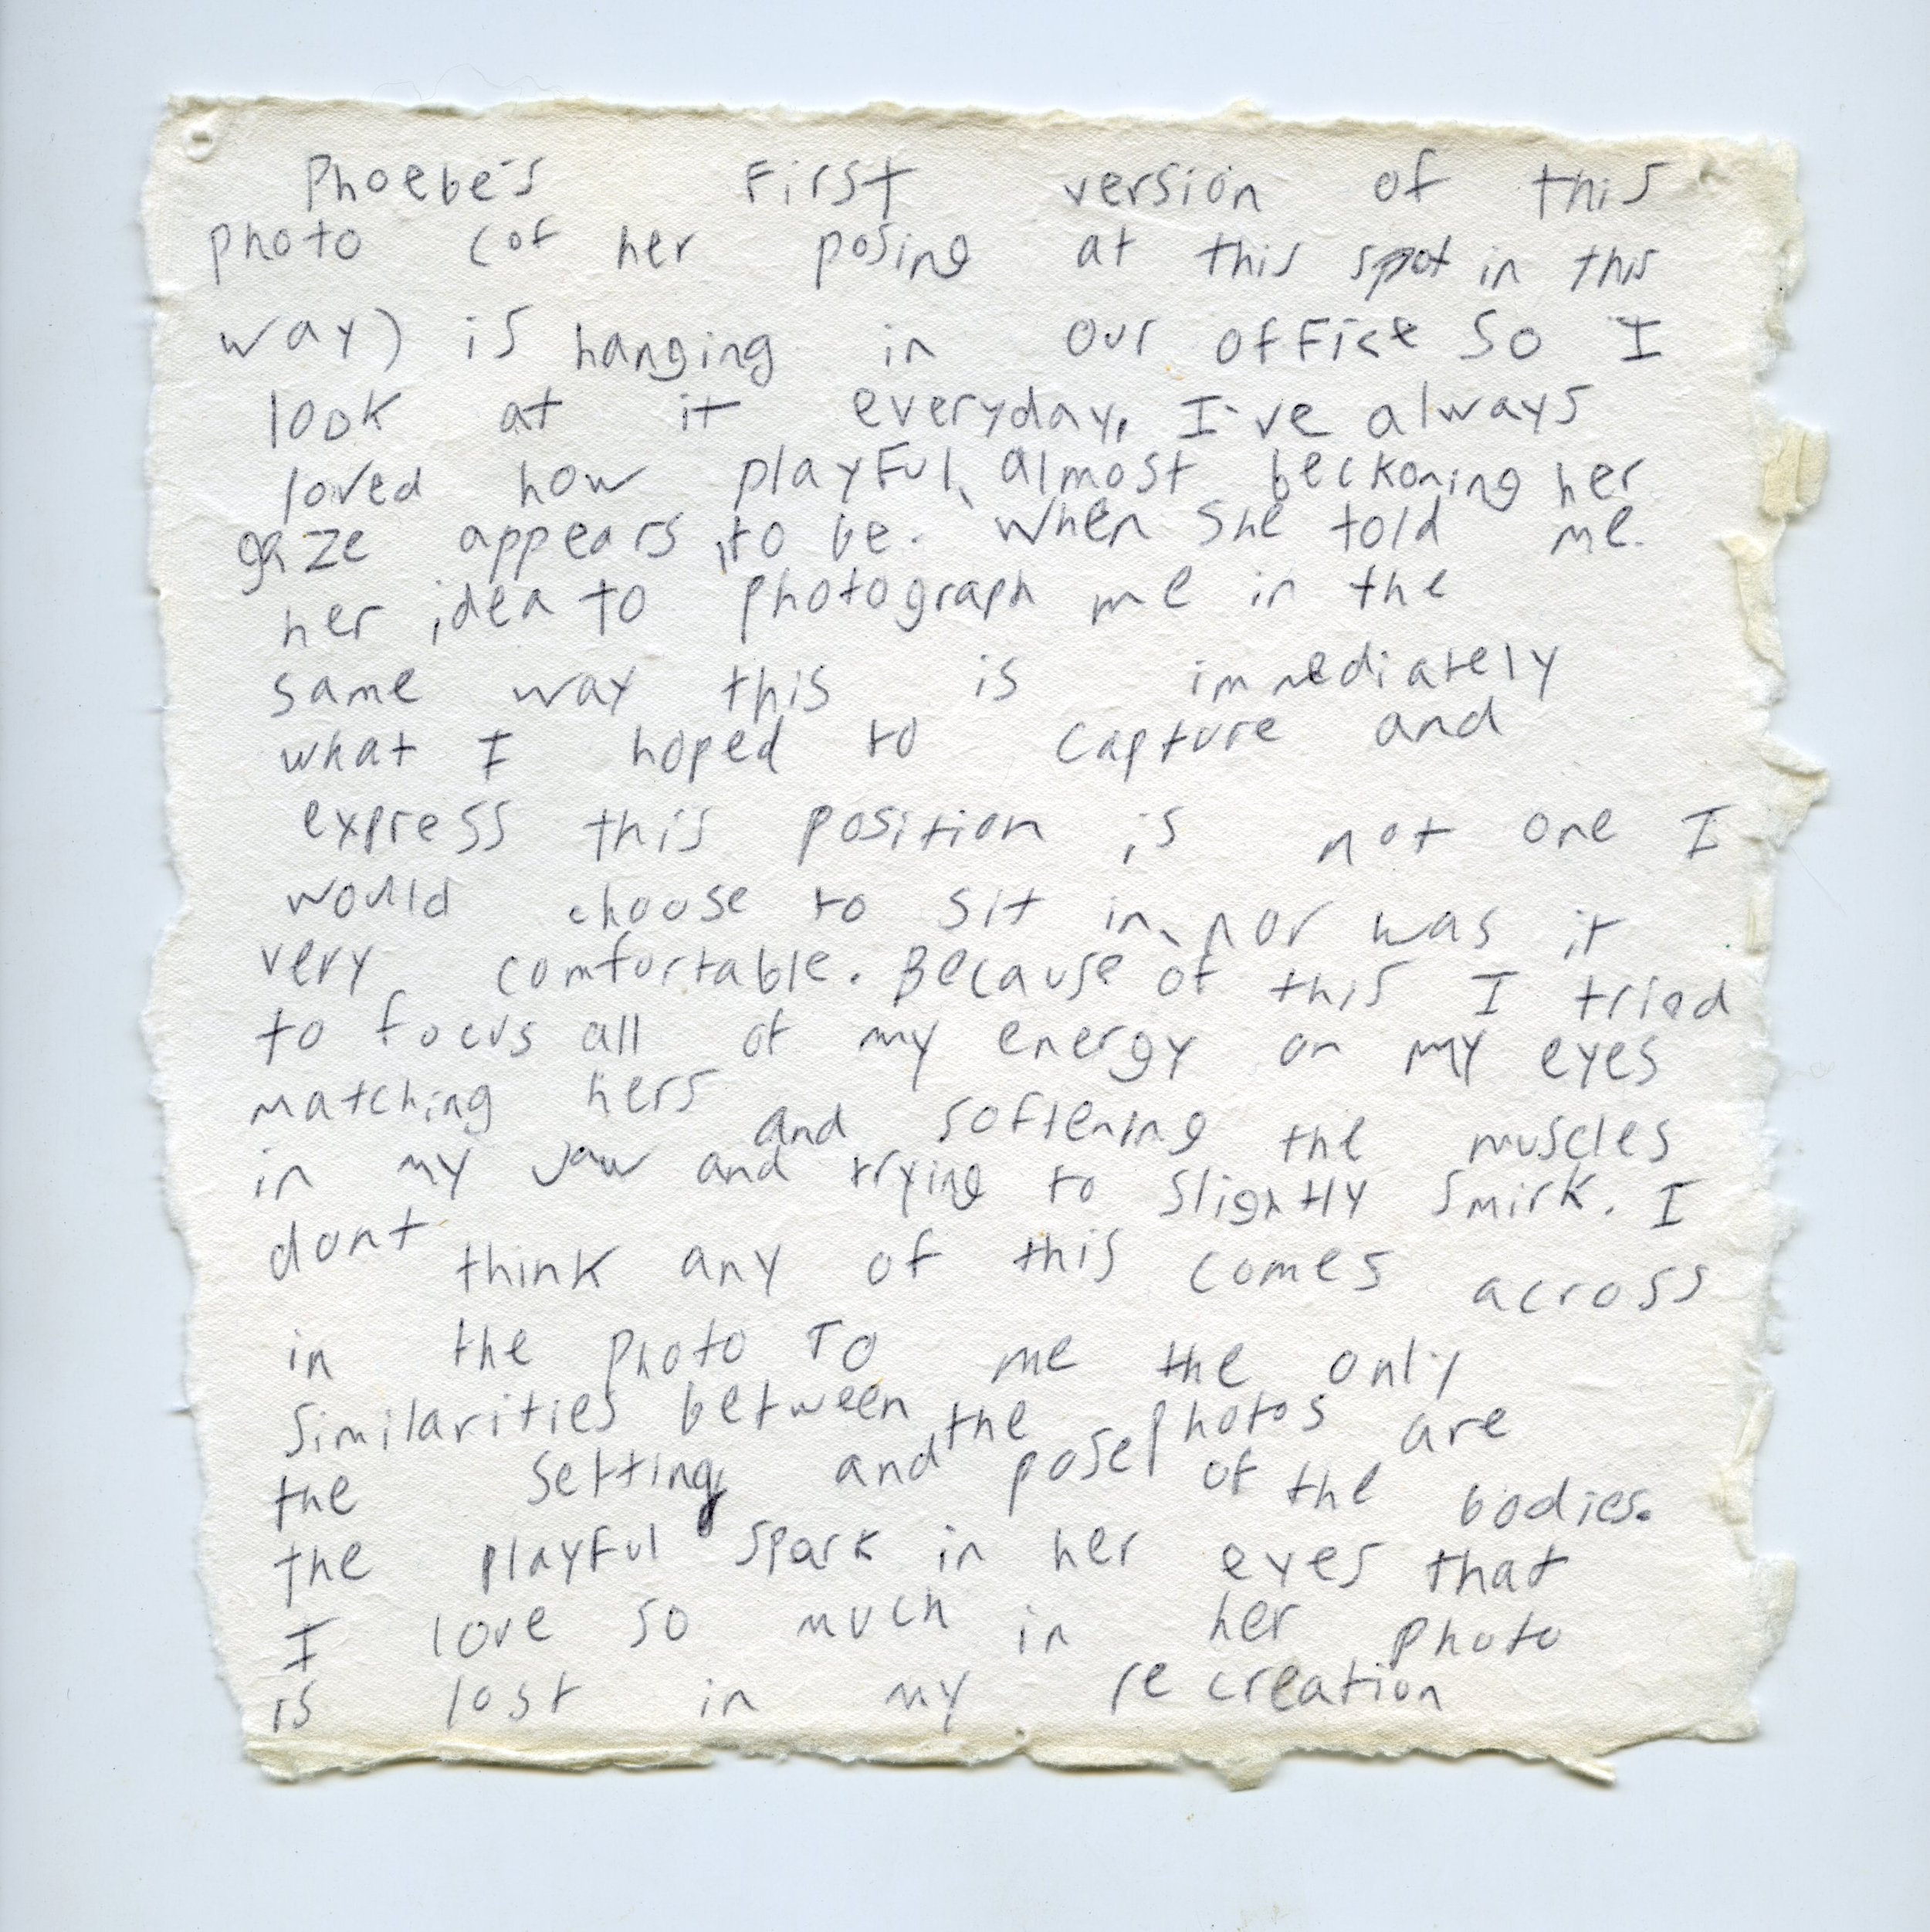 Phoebe's First version of this
photo (of her posing at this spot in this
way) is hanging in our office so I
look at it everyday, I've always
loved how playful, almost beckoning her
gaze appears to be. When she told me
her idea to photograph me in the
same way this is immediately
what I hoped to capture and
express this position is not one I
would choose to sit in, nor was it
very comfortable. Because of this I tried
to focus all of my energy on my eyes
matching hers and softening the muscles
in my jaw and trying to slightly smirk. I
dont think any of this comes across
in the photo To me the only
similarities between the photos are
the setting and pose of the bodies.
the playful spark in her eyes that
I love so much in her photo
is lost in my re creation